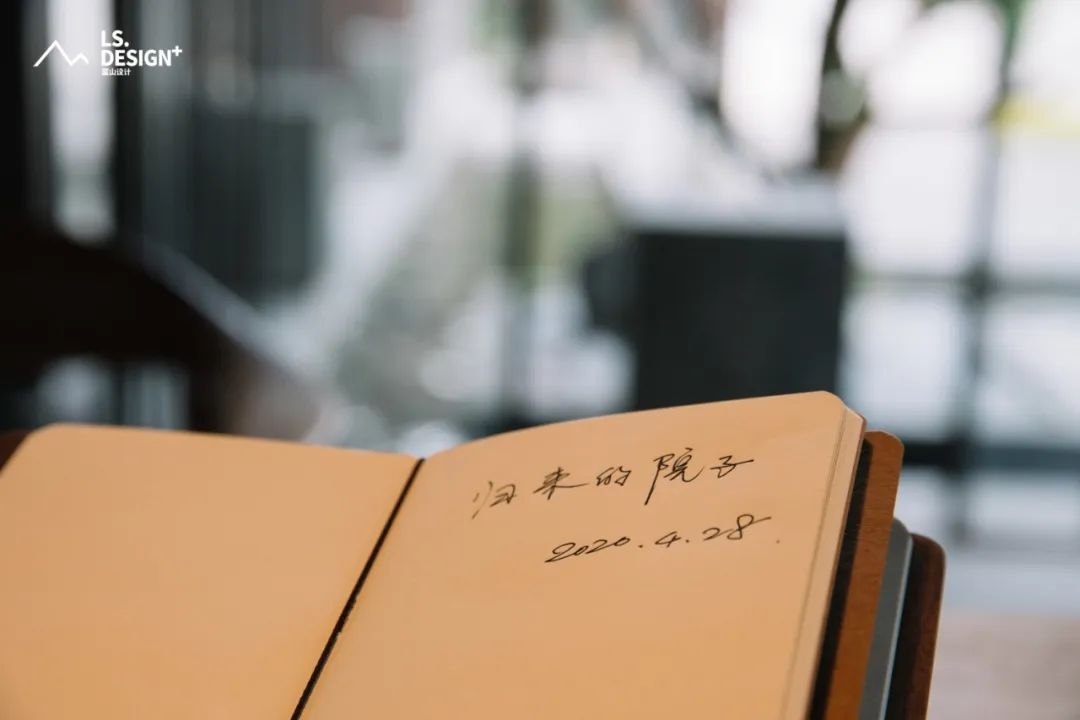 LS.
DESIGN+
蓝山设计
归来的院子
2020.4.28.